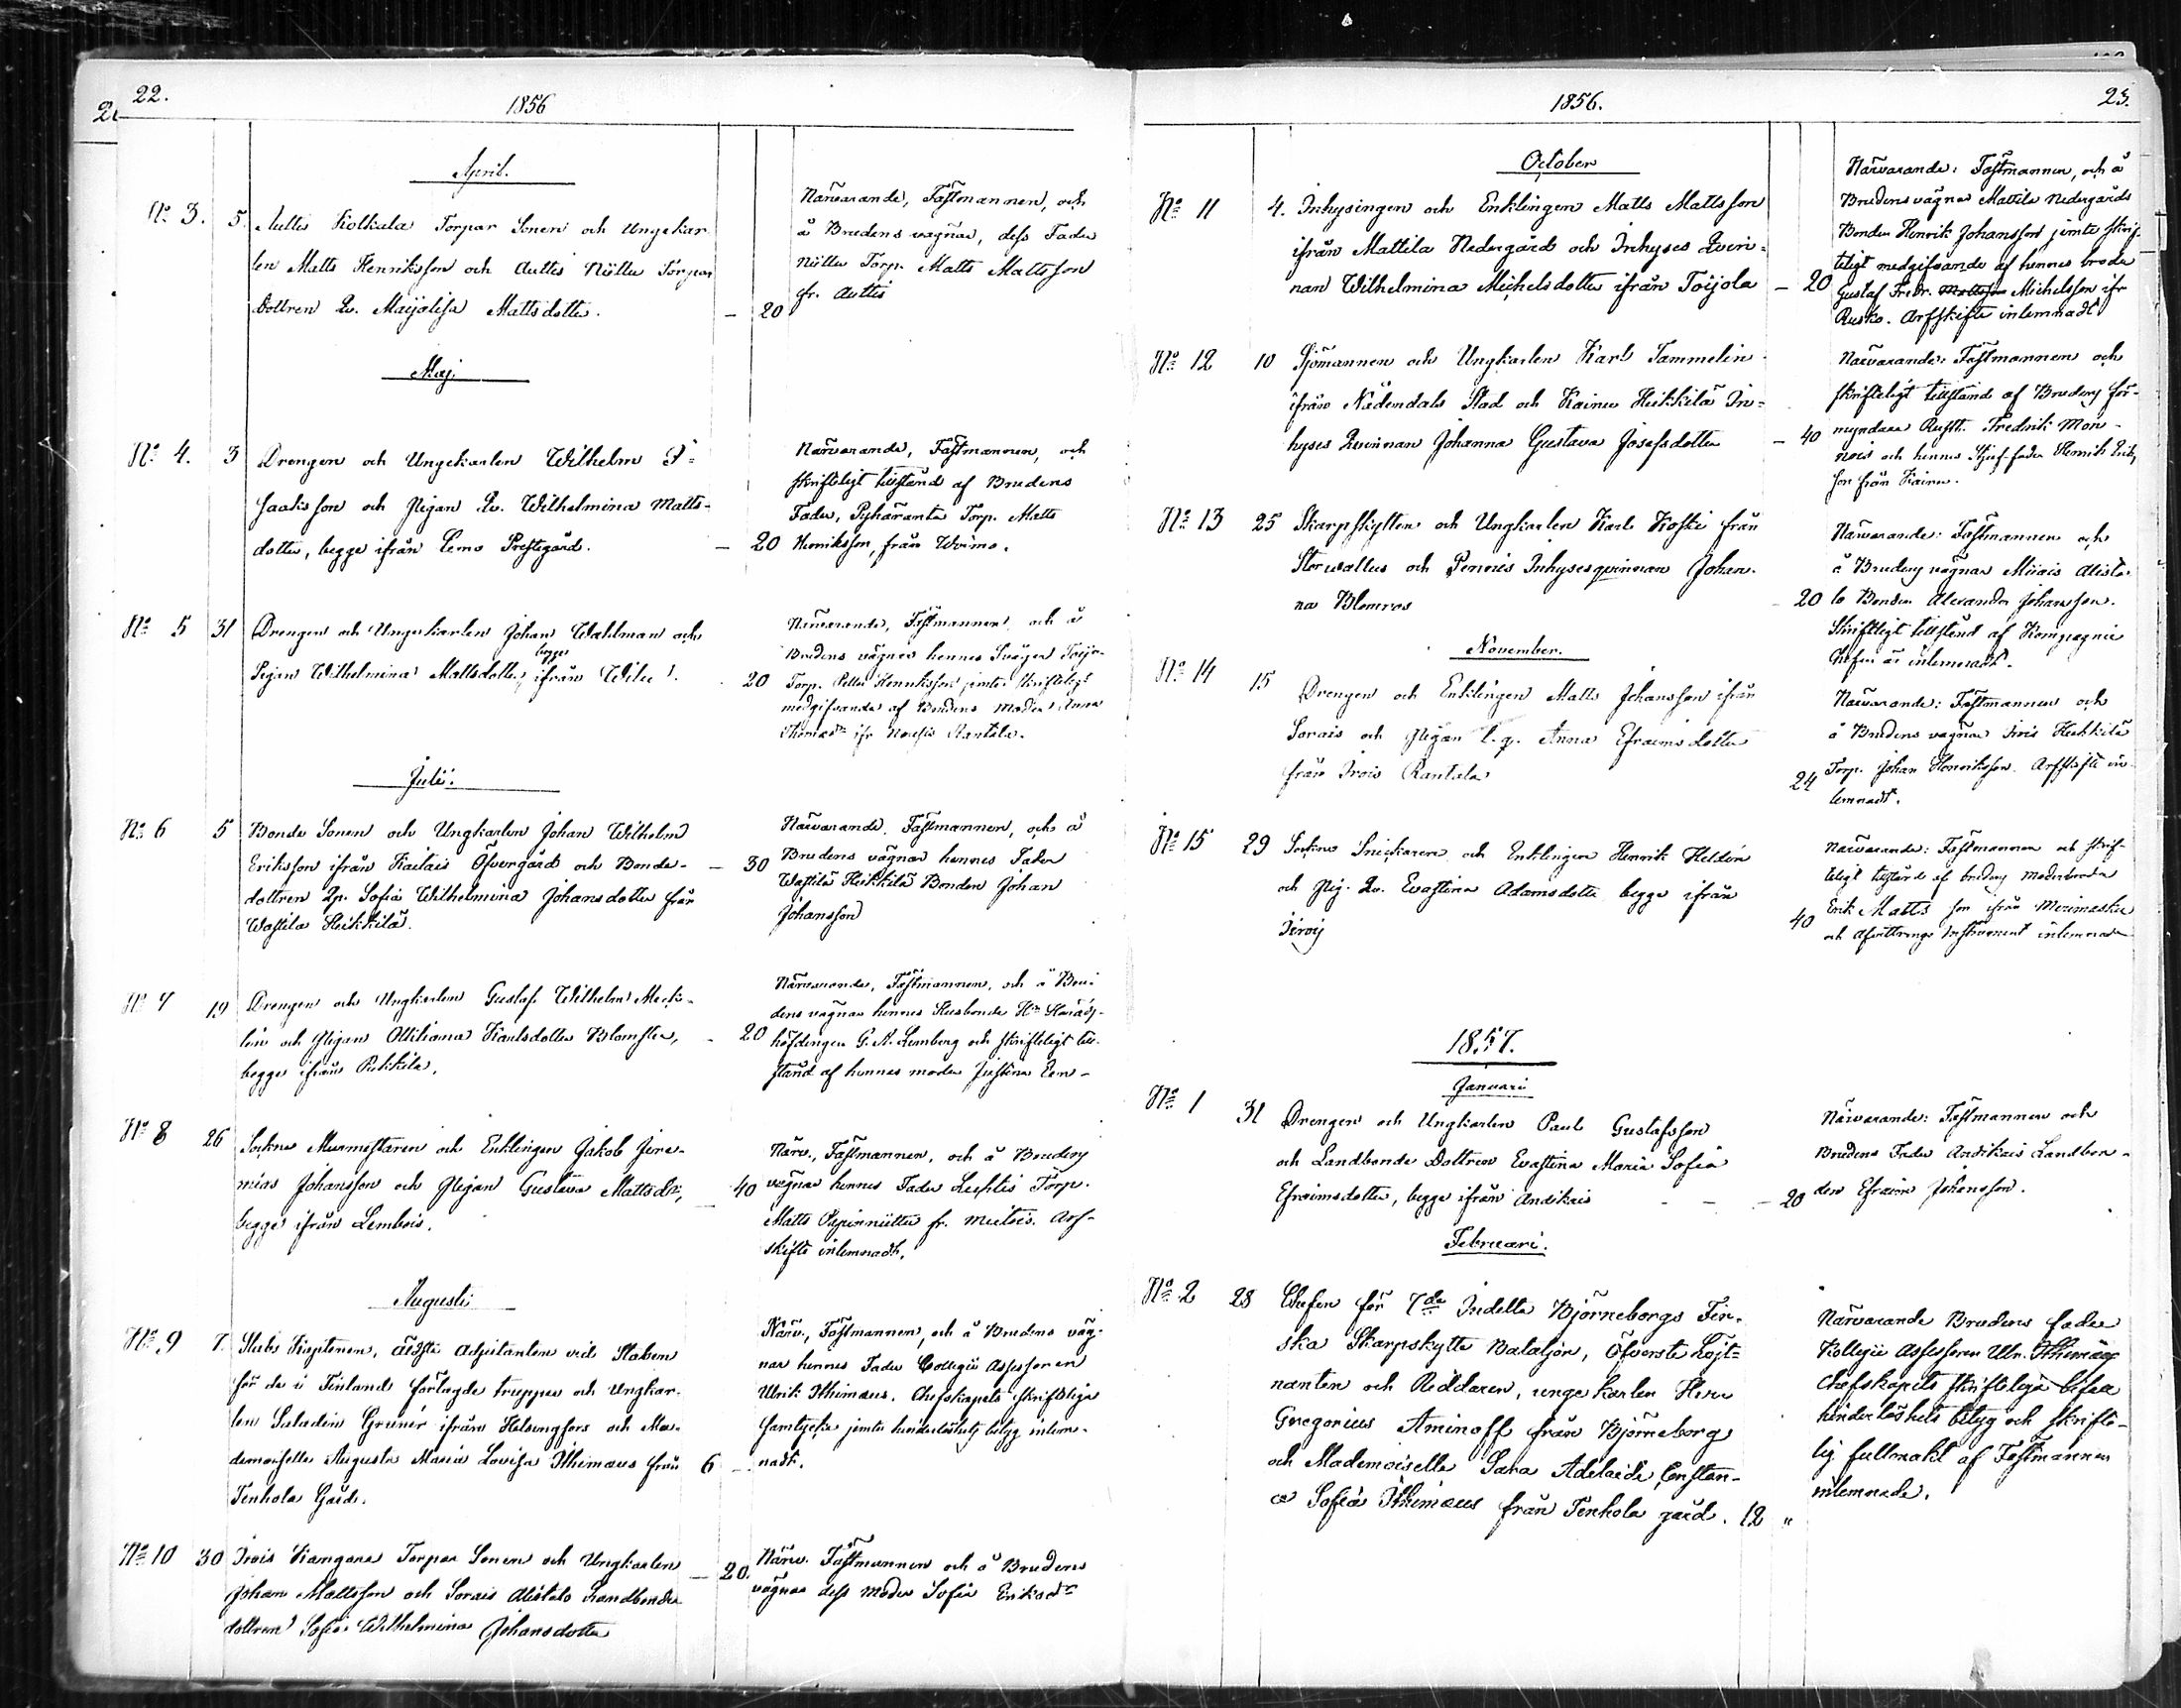 22.
1856
April.
No 3. 5. Auttis Kolkala Torpar Sonen och Ungekar
len Matts Henriksson och Auttis Niittu Torpar
Dottren Qv. Maijalisa Mattsdotter. — 20
Närvarande, Fästmannen, och
å Brudens vägnar, dess Fader
Niittu Torp. Matts Mattsson
fr. Auttis
Maj.
No 4. 3 Drengen och Ungekarlen Wilhelm I=
saaksson och Pigan Qv. Wilhelmina Matts-
dotter, begge ifrån Lemo Prestegård. — 20
Närvarande, Fästmannen, och
skrifteligt tillstånd af Brudens
Fader, Pyhäranta Torp. Matts
Henriksson, från
No 5 31 Drengen och Ungekarlen Johan Wahlman och
begge
Pigan Wilhelmina Mattsdotter, ifrån 20
Närvarande, Fästmannen och å
Brudens vägnar hennes Svåger
Torp. Petter Henriksson jemte skrifteligt
medgifvande af Brudens Moder Anna
ifr Rantala.
Julii.
No 6 5 Bonde Sonen och Ungkarlen Johan Wilhelm
Eriksson ifrån Kaitais Öfvergård och Bonde- — 30
dottren Qp. Sofia Wilhelmina Johansdotter från
Wastila Heikkilä.
Närvarande Fästmannen, och å
Brudens vägnar hennes Fader
Wastilä Heikkilä Bonden Johan
Johansson
No 7 19 Drengen och Ungkarlen Gustaf Wilhelm
lin och Pigan Ottiliana Karlsdotter Blomster, - 20
begge ifrån
Närvarande, Fästmannen, och å Bru-
dens vägnar hennes Husbonde Hr Härads-
höfdingen G. A. Lemberg och skrifteligt till-
stånd af hennes moder Justina
No 8 26 Sockne Murmestaren och Enklingen Jakob Jere-
mias Johansson och Pigan Gustava Mattsdr, — 40
begge ifrån Lembois.
Närv., Fästmannen, och å Brudens
vägnar hennes Fader Torp.
Matts fr. Arf-
skifte inlemnadt.
Augusti
No 9 7. Stabs Kapitenen, äldste Adjutanten vid Staben
för de i Finland förlagde trupper och Ungkar-
len Saladin Grunér ifrån Helsingfors och Ma-
demoiselle Augusta Maria Lovisa Ithimæus från 6 —
Tenhola Gård.
Närv., Fästmannen, och å Brudens väg-
nar hennes Fader Collegii Assessoren
Ulrik Ithimæus. Chefskapets skriftliga
samtycke jemte hinderlöshets betyg inlem-
nadt.
No 10 30 Irois Kangas Torpar Sonen och Ungkarlen — 20.
Johan Mattsson och Sorais Alistalo Landbonde
dottren Sofia Wilhelmina Johansdotter
Närv. Fästmannen och å Brudens
vägnar dess moder Sofia Eriksdr
1856. 23.
October
No 11 4. Inhysingen och Enklingen Matts Mattsson
ifrån Mattila Nedergård och Inhyses Qvin=
nan Wilhelmina Michelsdotter ifrån Toijola — 20
Närvarande: Fästmannen, och å
Brudens vägnar Mattila Nedergårds
Bonden Henrik Johansson jemte skrif-
teligt medgifvande af hennes broder
Gustaf Fredr. Mattsson Michelsson ifr
Rusko. Arfskifte inlemnadt
No 12 10 Sjömannen och Ungkarlen Karl Tammelin
ifrån Nådendals Stad och Kainu Heikkilä In=
hyses Qvinnan Johanna Gustava Josefsdotter — 40
Närvarande: Fästmannen och
skrifteligt tillstånd af Brudens för-
myndare Rustt. Fredrik Mon-
nois och hennes Stjuf-fader Henrik Eriks
son från Kainu.
No 13 25 Skarpskytten och Ungkarlen Karl Koski från
Storwallus och Pennois Inhysesqvinnan Johan-
na Blomros — 20
Närvarande: Fästmannen och
å Brudens vägnar Alista-
lo Bonden Alexander Johansson.
Skriftligt tillstånd af Kompagnie
Chefen är inlemnadt.
November.
No 14 15 Drengen och Enklingen Matts Johansson ifrån
Sorais och Pigan l. q. Anna Efraimsdotter
från Irois Rantala 24
Närvarande: Fästmannen och
å Brudens vägnar Irois Heikkilä
Torp. Johan Henriksson. Arfskifte in-
lemnadt.
No 15 29 Sockne Snickaren och Enklingen Henrik Heldén
och Pig. Qv. Evastina Adamsdotter begge ifrån
Irois 40
Närvarande: Fästmannen och skrif-
teligt tillstånd af brudens moderbroder
Erik Matts son ifrån Merimasku
och Afvittrings Instrument inlemnade
1857.
Januari
No 1 31 Drengen och Ungkarlen Paul Gustafsson
och Landbonde Dottren Evastina Maria Sofia
Efraimsdotter, begge ifrån Andikais - — — 20
Närvarande: Fästmannen och
Brudens Fader Andikais Landbon-
den Efraim Johansson.
Februari.
No 2 28 Chefen för 7de Indelta Björneborgs Fin-
ska Skarpskytte Bataljon, Öfverste Löjt=
nanten och Riddaren, unge karlen Herr
Gregorius Aminoff från Björneborg
och Mademoiselle Sara Adelaide Constan-
ce Sofia Ithimæus från Tenhola gård. 12 "
Närvarande Brudens fader
Kollegie Assessoren Ulr. Ithimæus
Chefskapets skriftliga bifall
hinderlöshets betyg och skrifte-
lig fullmakt af Fästmannen
inlemnade.